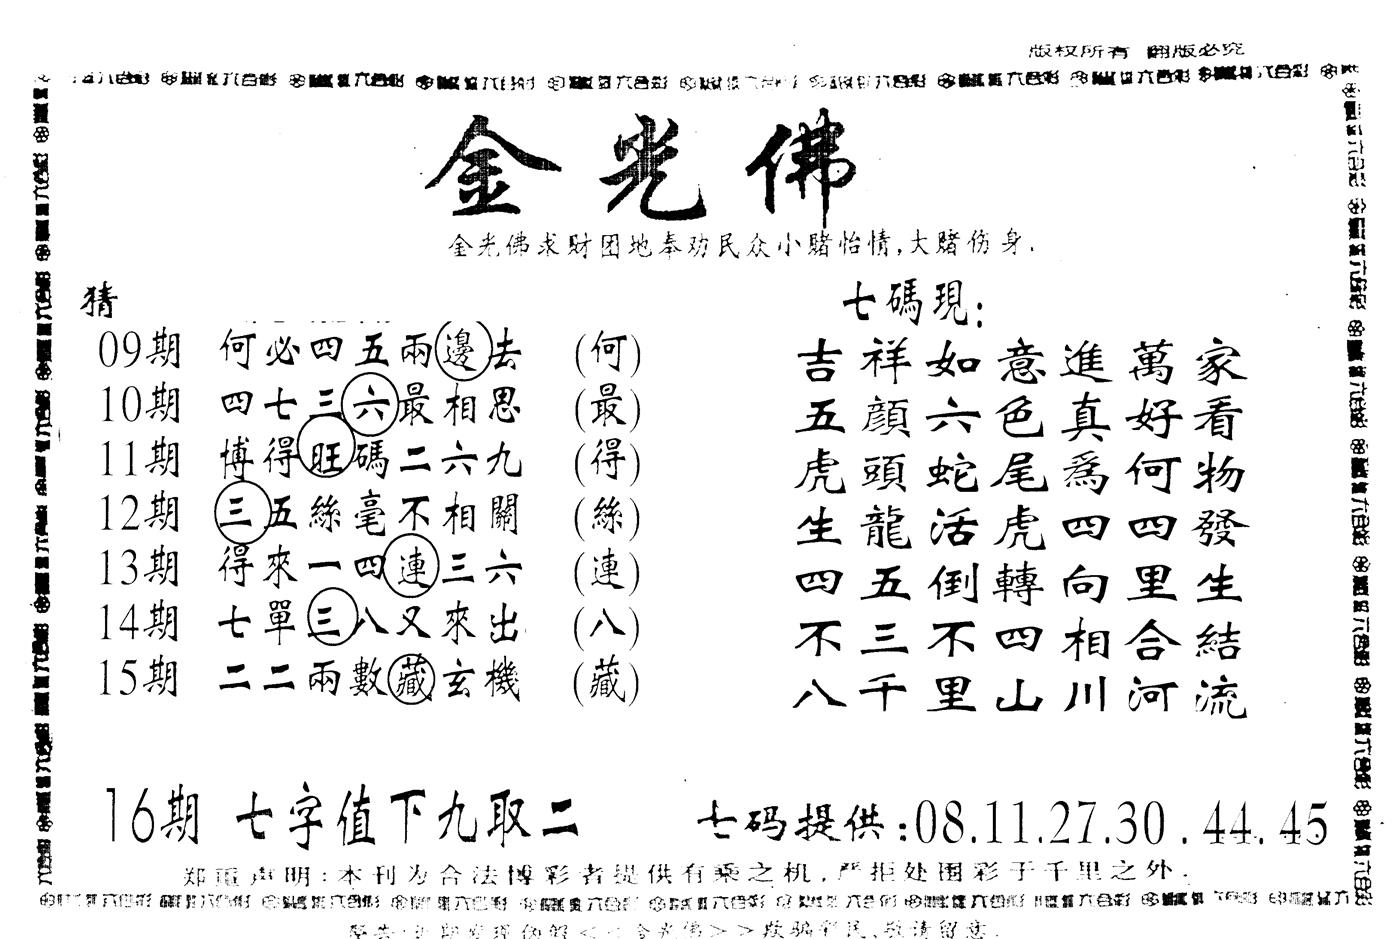 版权所有 翻版必究
金光佛
金光佛求财团地奉劝民众小赌怡情,大赌伤身.
猜
09期 何必四五兩邊去 (何)
10期 四七三六最相思 (最)
11期 博得旺碼二六九 (得)
12期 三五絲毫不相關 (絲)
13期 得來一四連三六 (連)
14期 七單三八又來出 (八)
15期 二二兩數藏玄機 (藏)
七碼現:
吉祥如意進萬家
五顔六色真好看
虎頭蛇尾爲何物
生龍活虎四四發
四五倒轉向里生
不三不四相合結
八千里山川河流
16期 七字值下九取二
七码提供:08.11.27.30.44.45
郑重声明:本刊为合法博彩者提供有乘之机,严拒处围彩于千里之外.